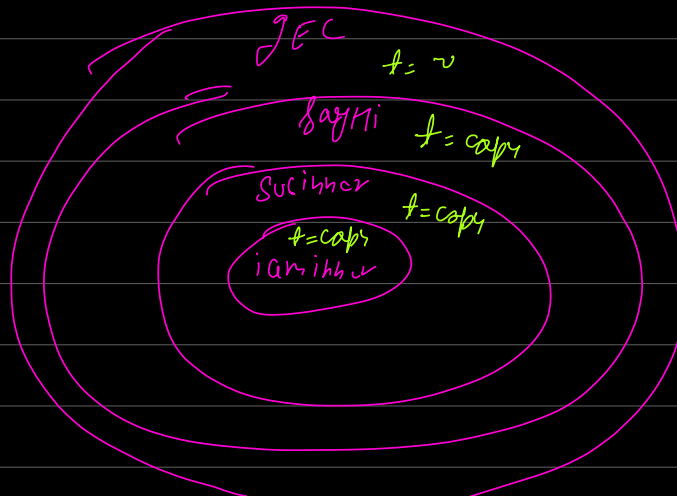 GEC
t= v
sayHi
t= copy
subinner
t=copy
t=copy
iaminner